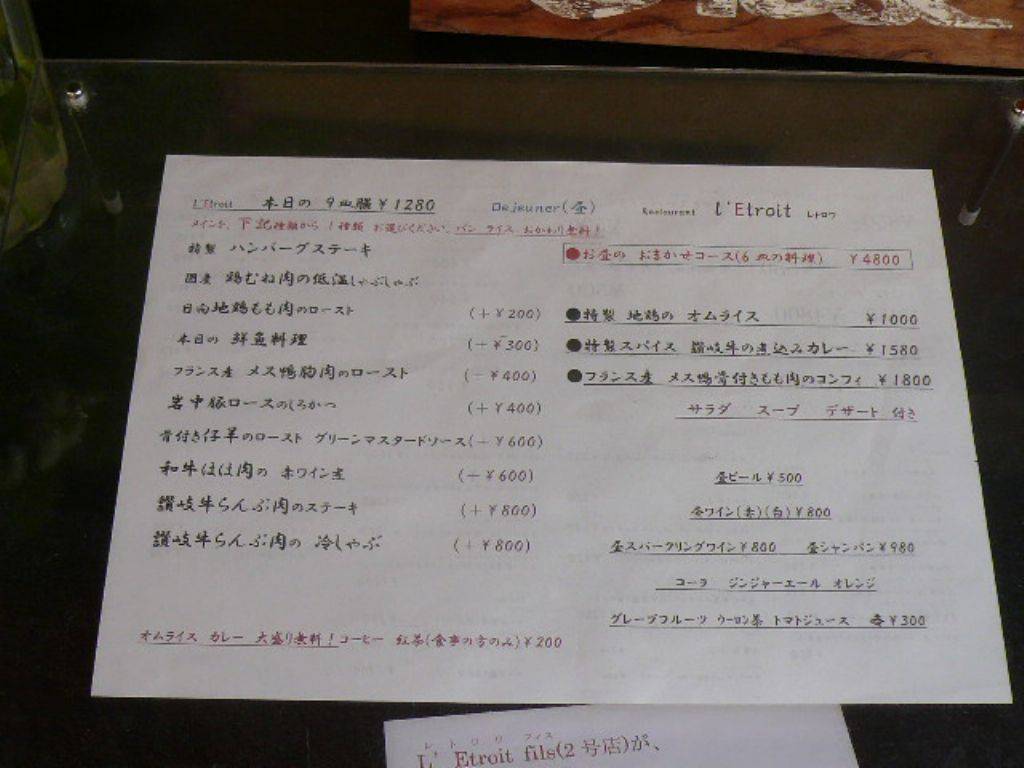 L'Etroit 本日の 9皿膳 ¥1280
メインを、下記種類から 1種類 お選びください。パン ライス おかわり無料!
特製 ハンバーグステーキ
国産 鶏むね肉の低温しゃぶしゃぶ
日向地鶏もも肉のロースト (+¥200)
本日の 鮮魚料理 (+¥300)
フランス産 メス鴨胸肉のロースト (+¥400)
岩中豚ロースのしろかつ (+¥400)
骨付き仔羊のロースト グリーンマスタードソース(+¥600)
和牛ほほ肉の 赤ワイン煮 (+¥600)
讃岐牛らんぷ肉のステーキ (+¥800)
讃岐牛らんぷ肉の 冷しゃぶ (+¥800)
オムライス カレー 大盛り無料!コーヒー 紅茶(食事の方のみ)¥200
Dejeuner(昼) Restaurant l'Etroit レトロワ
●お昼の おまかせコース(6皿の料理) ¥4800
●特製 地鶏の オムライス ¥1000
●特製スパイス 讃岐牛の煮込みカレー ¥1580
●フランス産 メス鴨骨付きもも肉のコンフィ ¥1800
サラダ スープ デザート 付き
昼ビール¥500
昼ワイン(赤)(白)¥800
昼スパークリングワイン¥800 昼シャンパン¥980
コーラ ジンジャーエール オレンジ
グレープフルーツ ウーロン茶 トマトジュース 各¥300
レトロワ フィス
L' Etroit fils(2号店)が、